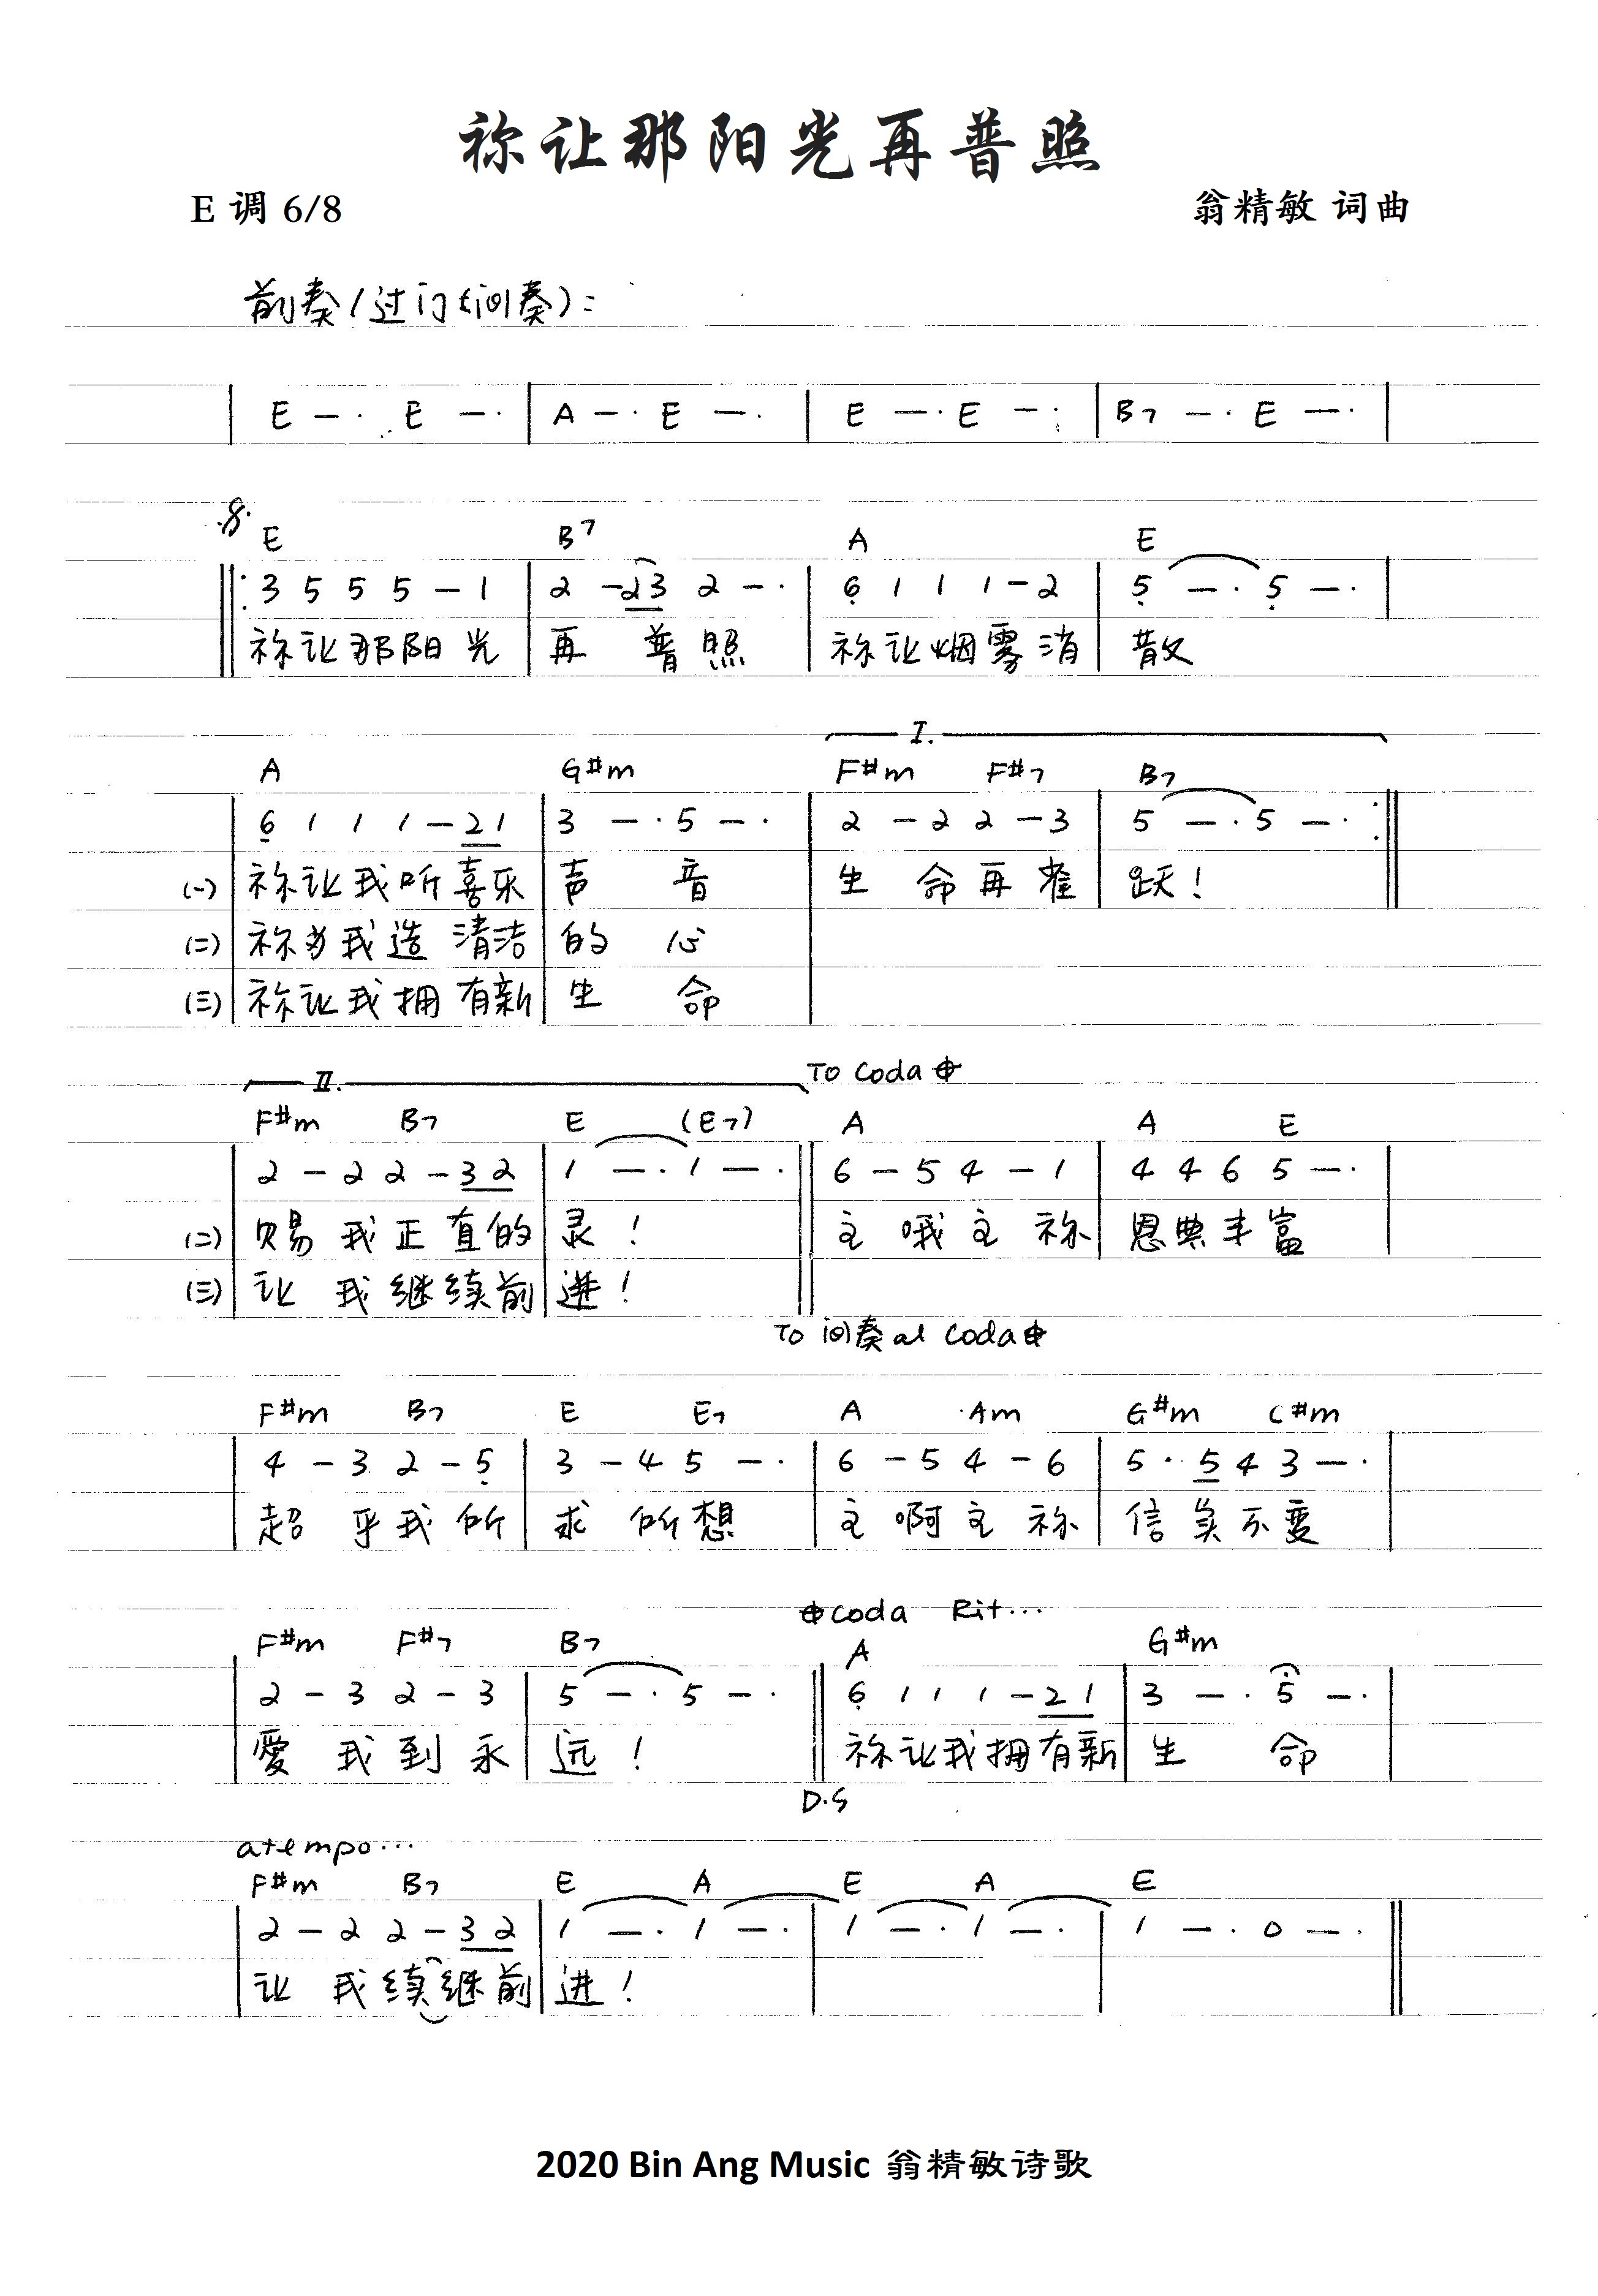 祢让那阳光再普照
E 调 6/8 翁精敏 词曲
前奏/过门(间奏):
| E — · E — · | A — · E — · | E — · E — · | B7 — · E — · |
E B7 A E
‖: 3 5 5 5 — 1 | 2 — 2 3 2 — · | 6 1 1 1 — 2 | 5 — · 5 — · |
祢让那阳光 再 普照 祢让烟雾消 散
I.
A G#m F#m F#7 B7
| 6 1 1 1 — 2 1 | 3 — · 5 — · | 2 — 2 2 — 3 | 5 — · 5 — · :‖
(一) 祢让我听喜乐 声 音 生 命再雀 跃!
(二) 祢为我造清洁 的 心
(三) 祢让我拥有新 生 命
II. To Coda
F#m B7 E (E7) A A E
| 2 — 2 2 — 3 2 | 1 — · 1 — · ‖ 6 — 5 4 — 1 | 4 4 6 5 — · |
(二) 赐 我正直的 灵! 主 哦主 祢 恩典丰富
(三) 让 我继续前 进!
To 间奏 al Coda
F#m B7 E E7 A Am G#m C#m
| 4 — 3 2 — 5 | 3 — 4 5 — · | 6 — 5 4 — 6 | 5 · 5 4 3 — · |
超 乎我 所 求 所想 主 啊主 祢 信实不变
Coda Rit...
F#m F#7 B7 A G#m
| 2 — 3 2 — 3 | 5 — · 5 — · ‖ 6 1 1 1 — 2 1 | 3 — · 5 — · |
愛 我到 永 远! 祢让我拥有新 生 命
D.S
atempo...
F#m B7 E A E A E
| 2 — 2 2 — 3 2 | 1 — · 1 — · | 1 — · 1 — · | 1 — · 0 — · ‖
让 我续继前 进!
2020 Bin Ang Music 翁精敏诗歌